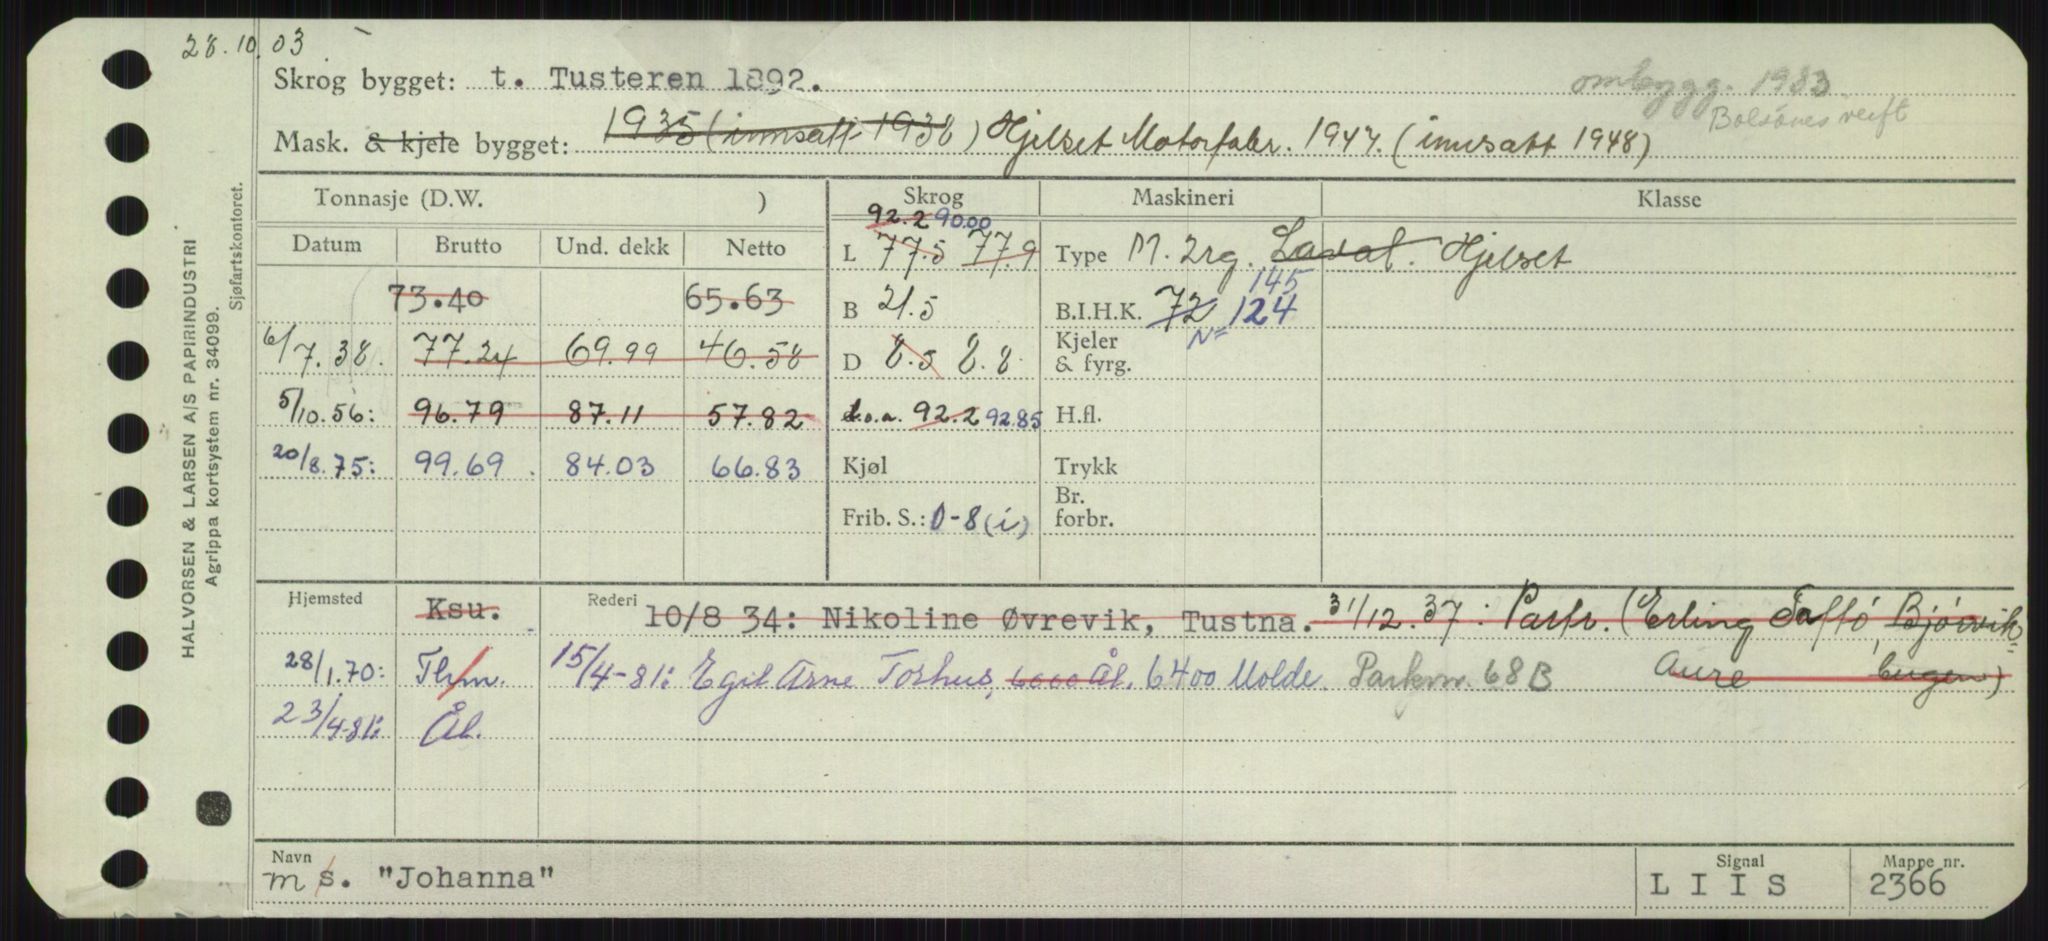 28.10.03
Skrog bygget: t. Tusteren 1892.
ombygg. 1983
Bolsönes verft
Mask. & kjele bygget: 1935 (innsatt 1938) Hjelset Motorfabr. 1947. (innsatt 1948)
Tonnasje (D.W. )
Skrog
Maskineri
Klasse
Datum Brutto Und. dekk Netto
73.40 65.63
6/7.38. 77.24 69.99 46.58
5/10.56: 96.79 87.11 57.82
20/8.75: 99.69 84.03 66.83
92.2 90.00
L 77.5 77.9
B 21.5
D 8.5 8.8
L.o.a. 92.2 92.85
Kjøl
Frib. S.: 0-8 (i)
Type M. 2rg. Laval. Hjelset
145
B.I.H.K. 72 124
N=
Kjeler
& fyrg.
H.fl.
Trykk
Br.
forbr.
Hjemsted Ksu.
28/1.70: Thm.
23/4-81: Ål.
Rederi 10/8 34: Nikoline Øvrevik, Tustna. 31/12.37: Partr. (Erling Saltö, Bjórvik=
15/4-81: Egil Arne Torhus, 6060 Ål. 6400 Molde. Parkvn. 68B Aure bugen)
Navn
m/s. "Johanna"
Signal
L I I S
Mappe nr.
2366
HALVORSEN & LARSEN A/S PAPIRINDUSTRI
Agrippa kortsystem nr. 34099.
Sjøfartskontoret.